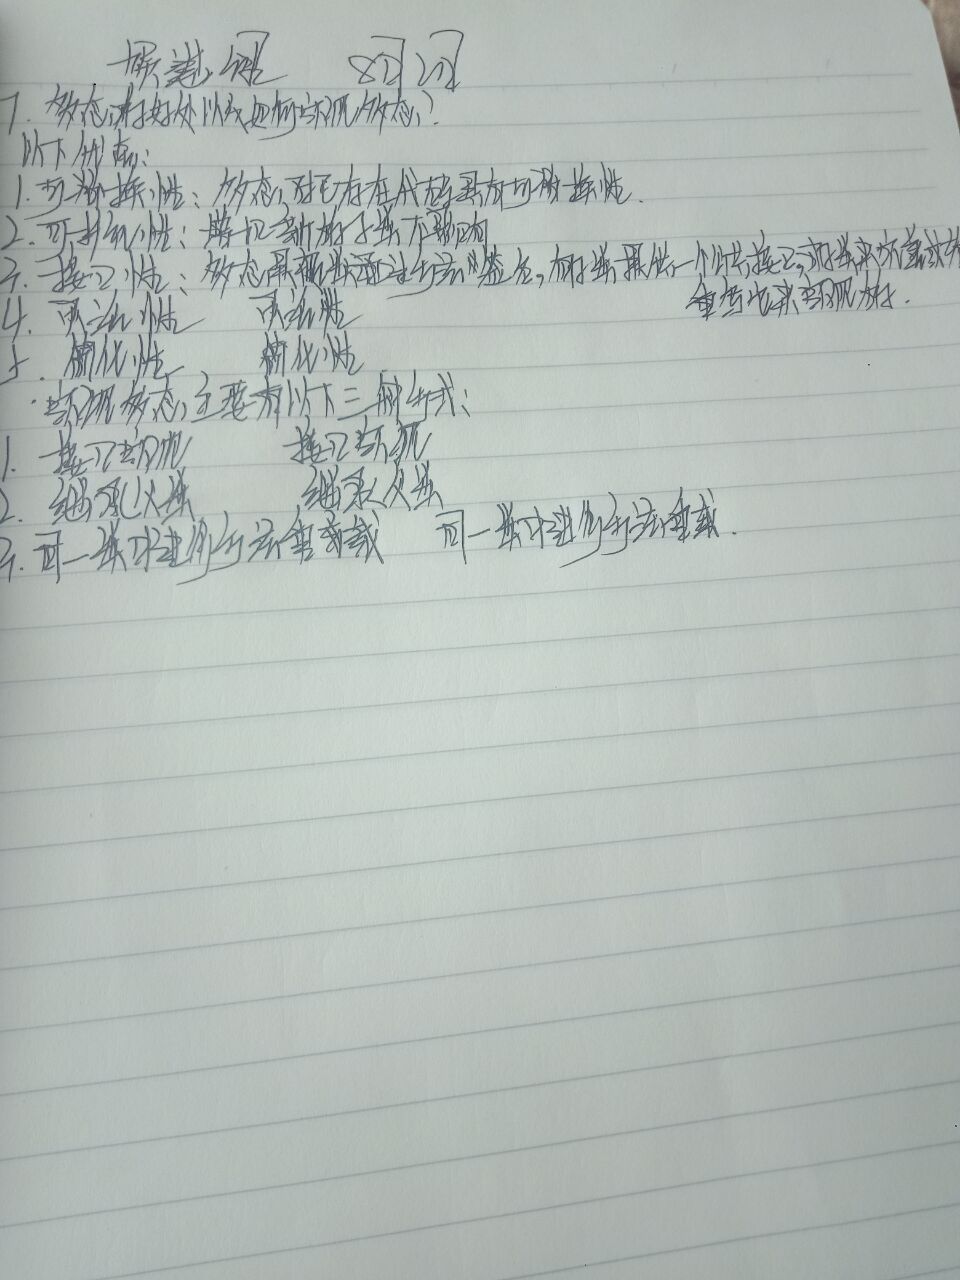 7. 多态的好处以及如何实现多态?
以下优点:
1. 可替换性: 多态对已存在代码具有可替换性.
2. 可扩充性: 增加新的子类不影响
3. 接口性: 多态是超类通过方法签名,向子类提供一个共同接口,由子类来完善或者
重写它来实现的.
4. 灵活性 灵活性
5. 简化性 简化性
实现多态主要有以下三种方式:
1. 接口实现 接口实现
2. 继承父类 继承父类
3. 同一类中进行方法重载 同一类中进行方法重载.